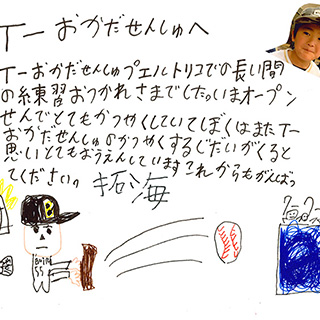 Tーおかだせんしゅへ
Tーおかだせんしゅプエルトリコでの長い間
の練習おつかれさまでした。いまオープン
せんでとてもかつやくしていてぼくはまたTー
おかだせんしゅのかつやくするじだいがくると
思いとてもおうえんしていますこれからもがんばっ
てください。拓海
B
55